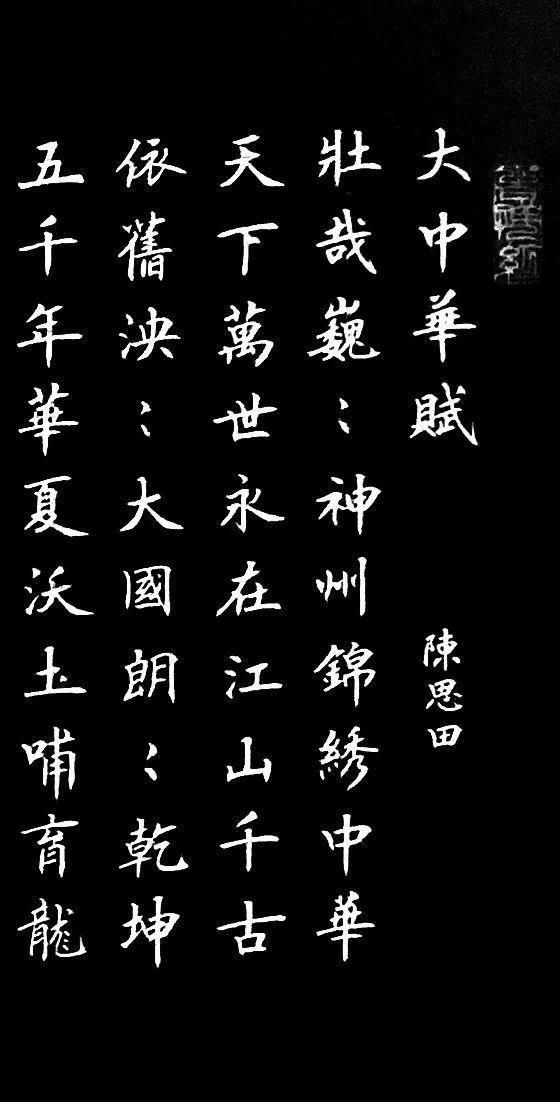 大中華賦
陳思田
壯哉巍〻神州錦綉中華
天下萬世永在江山千古
依舊泱〻大國朗〻乾坤
五千年華夏沃土哺育龍